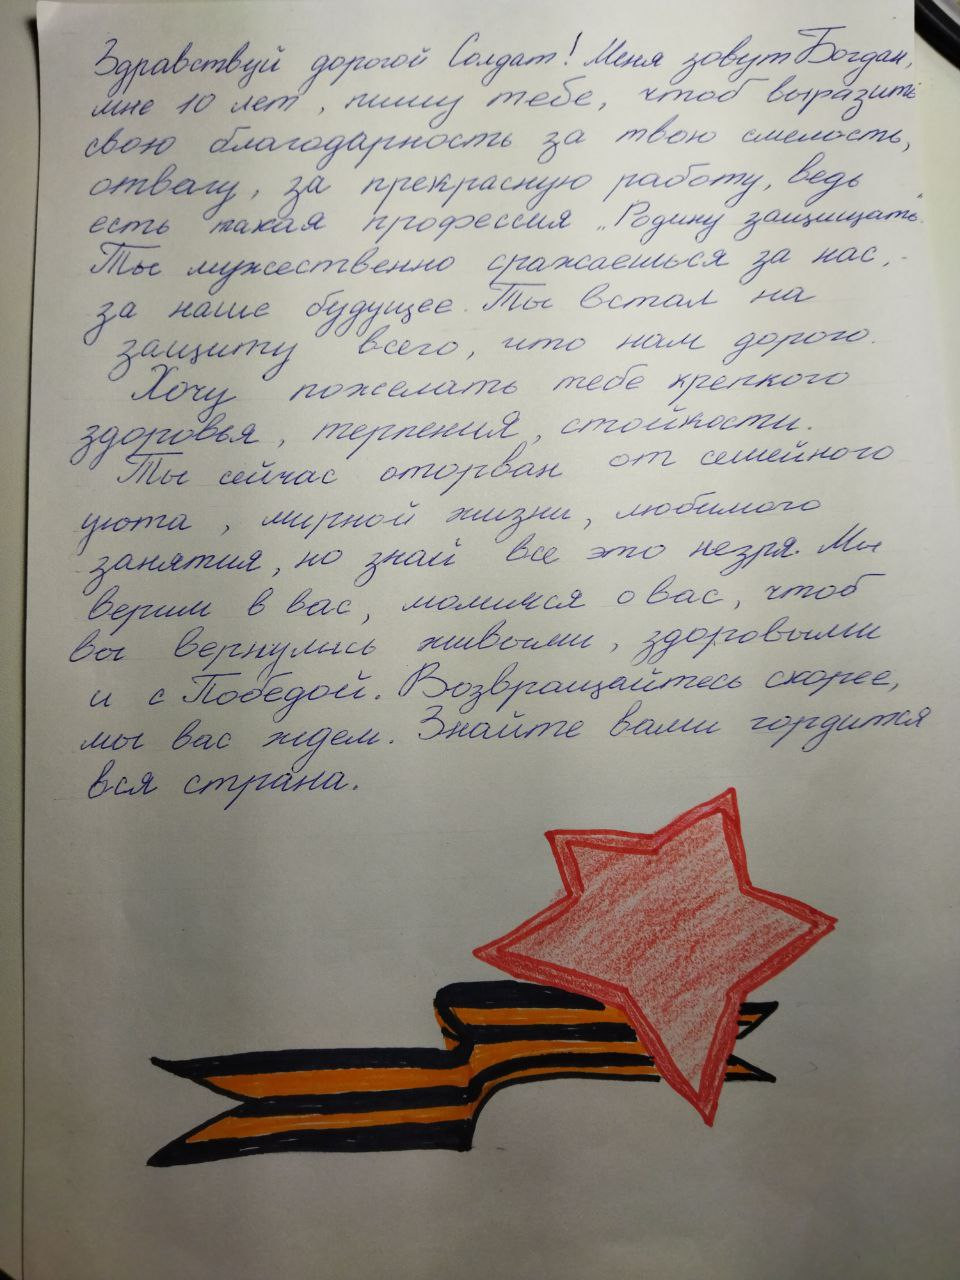 Здравствуй дорогой Солдат! Меня зовут Богдан,
мне 10 лет, пишу тебе, чтоб выразить
свою благодарность за твою смелость,
отвагу, за прекрасную работу, ведь
есть такая профессия „Родину защищать"
Ты мужественно сражаешься за нас,
за наше будущее. Ты встал на
защиту всего, что нам дорого.
Хочу пожелать тебе крепкого
здоровья, терпения, стойкости.
Ты сейчас оторван от семейного
уюта, мирной жизни, любимого
занятия, но знай все это незря. Мы
верим в вас, молимся о вас, чтоб
вы вернулись живыми, здоровыми
и с Победой. Возвращайтесь скорее,
мы вас ждем. Знайте вами гордится
вся страна.